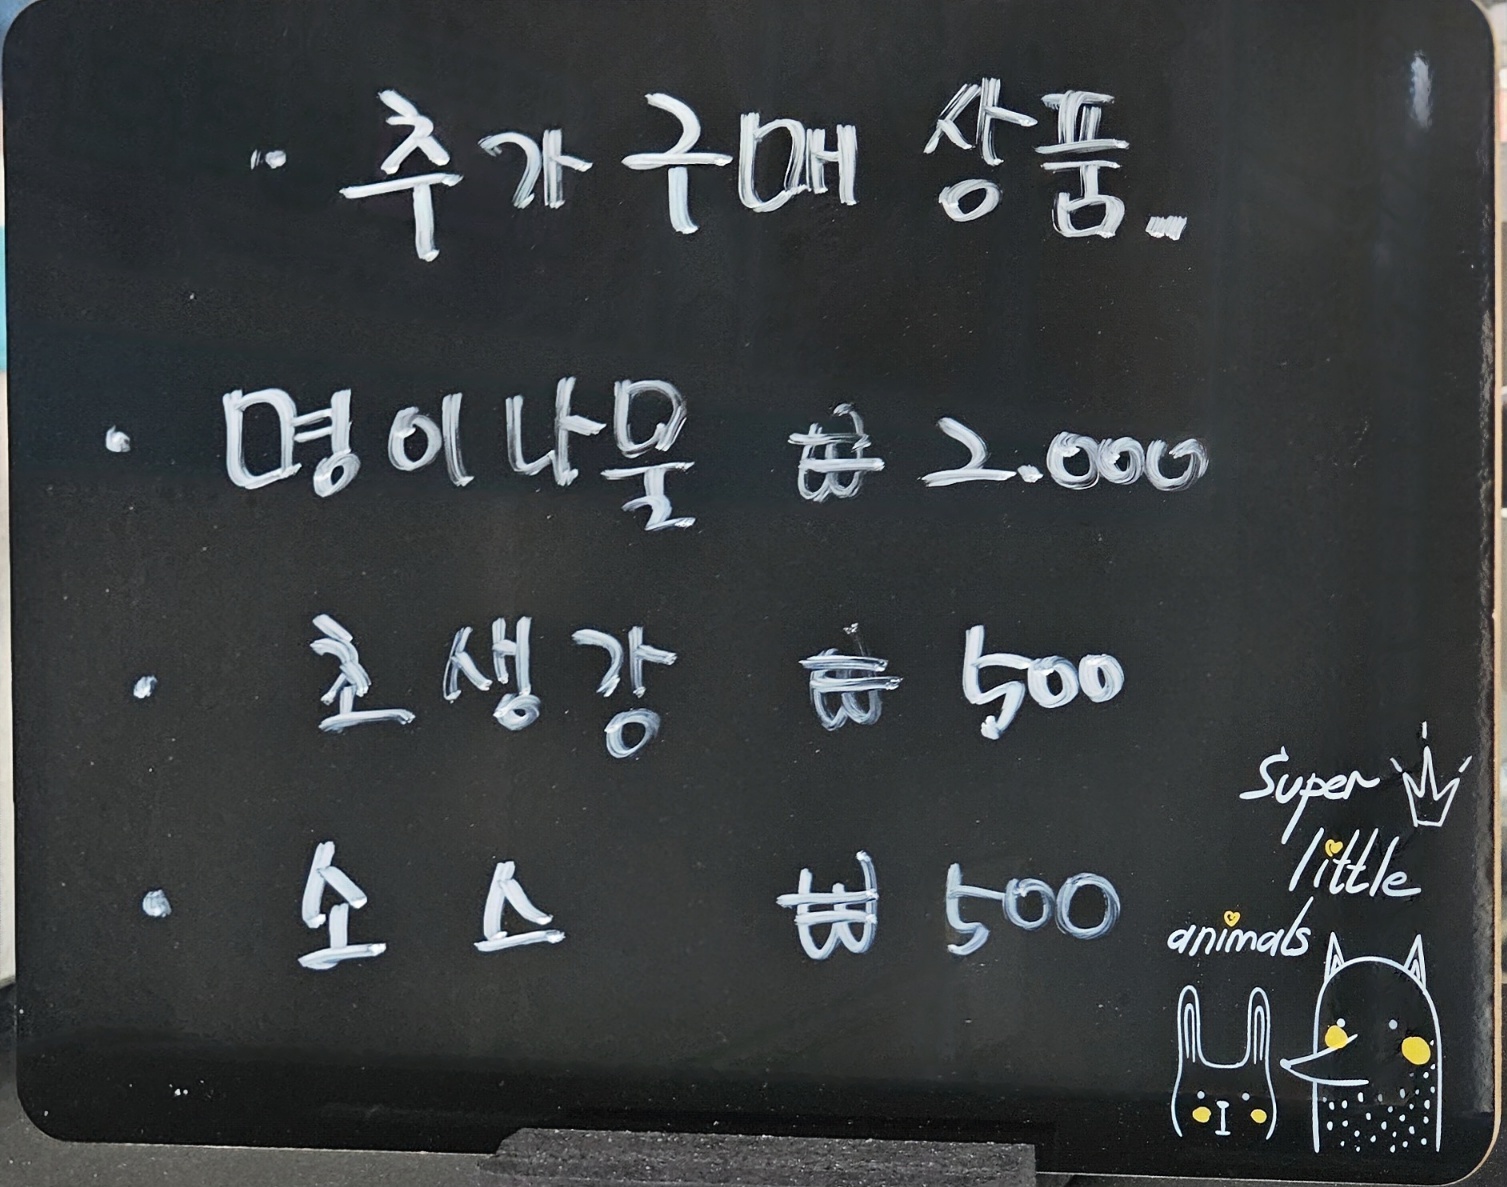 ¨ 추가 구매 상품..
• 명이나물 ₩ 2.000
• 초생강 ₩ 500
• 소스 ₩ 500
Super
little
animals